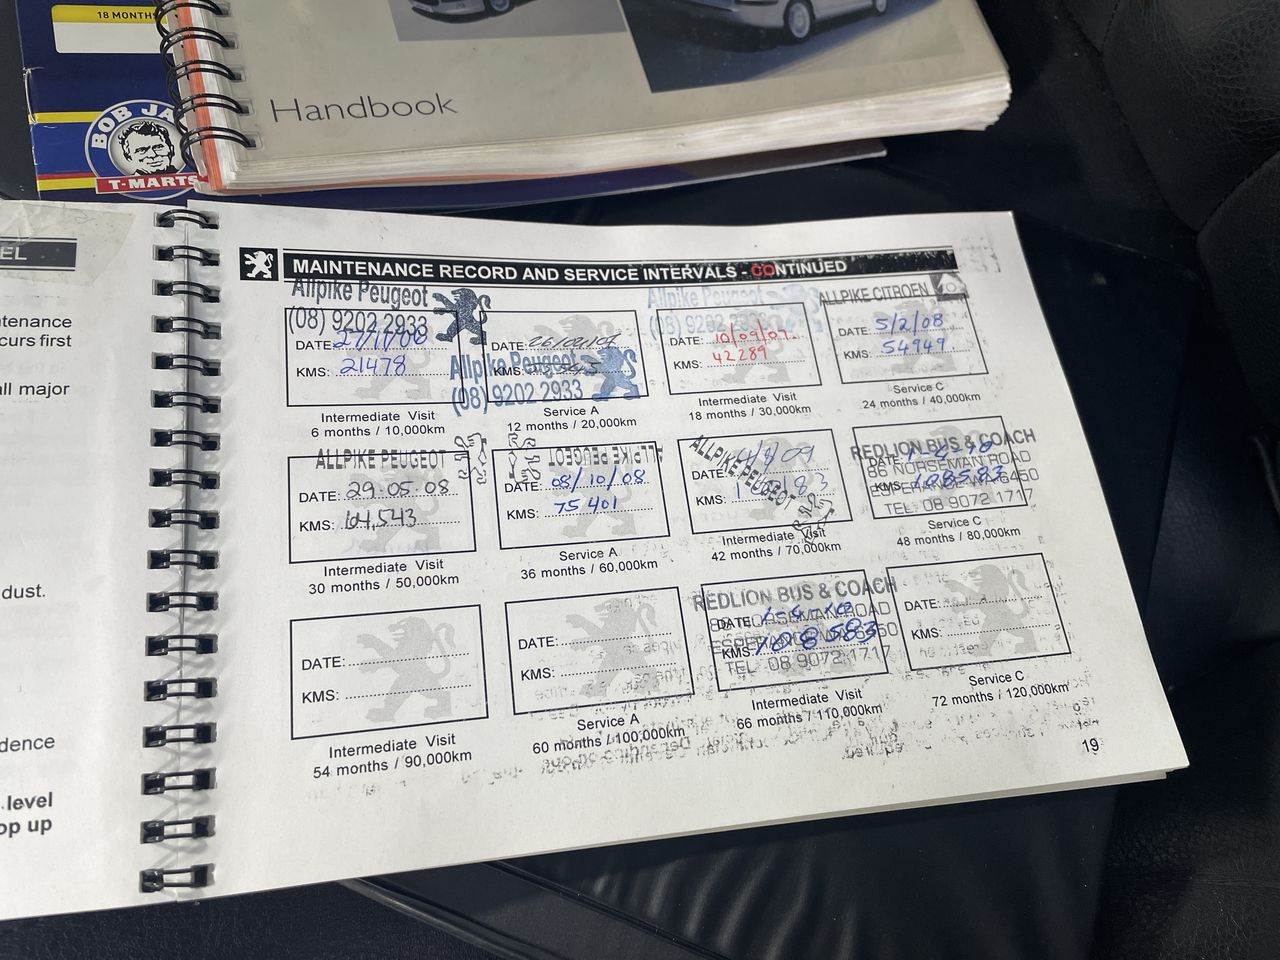 18 MONTHS
BOB JA
T-MARTS
Handbook
EL
ntenance
curs first
all major
dust.
dence
level
op up
MAINTENANCE RECORD AND SERVICE INTERVALS - CONTINUED
Allpike Peugeot
(08) 9202 2933
DATE:
KMS: 21478
Intermediate Visit
6 months / 10,000km
DATE:
KMS:
Allpike Peugeot
(08) 9202 2933
Service A
12 months / 20,000km
Allpike Peugeot
(08) 9202 2933
DATE: 10/09/07
KMS: 42289
Intermediate Visit
18 months / 30,000km
ALLPIKE CITROEN
DATE: 5/2/08
KMS: 54949
Service C
24 months / 40,000km
ALLPIKE PEUGEOT
DATE: 29·05·08
KMS: 64,543
Intermediate Visit
30 months / 50,000km
ALLPIKE PEUGEOT
DATE: 08/10/08
KMS: 75401
Service A
36 months / 60,000km
ALLPIKE PEUGEOT
DATE:
KMS:
Intermediate Visit
42 months / 70,000km
REDLION BUS & COACH
DATE:
80 NORSEMAN ROAD
KMS: 108583
ESPERANCE WA 6450
TEL: 08 9072 1717
Service C
48 months / 80,000km
DATE:
KMS:
Intermediate Visit
54 months / 90,000km
DATE:
KMS:
Service A
60 months / 100,000km
REDLION BUS & COACH
DATE:
80 NORSEMAN ROAD
KMS: 108583
ESPERANCE WA 6450
TEL: 08 9072 1717
Intermediate Visit
66 months / 110,000km
DATE:
KMS:
Service C
72 months / 120,000km
19